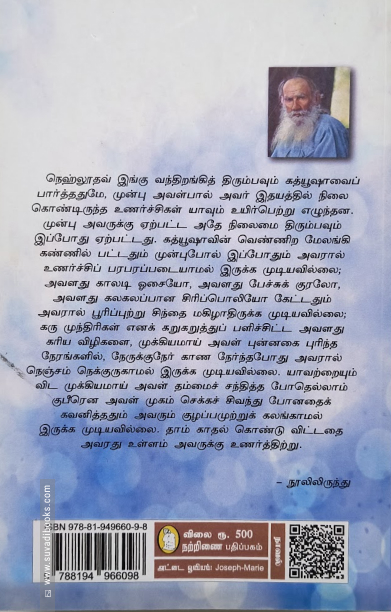 நெஹ்லூதவ் இங்கு வந்திறங்கித் திரும்பவும் கத்யூஷாவைப்
பார்த்ததுமே, முன்பு அவள்பால் அவர் இதயத்தில் நிலை
கொண்டிருந்த உணர்ச்சிகள் யாவும் உயிர்பெற்று எழுந்தன.
முன்பு அவருக்கு ஏற்பட்ட அதே நிலைமை திரும்பவும்
இப்போது ஏற்பட்டது. கத்யூஷாவின் வெண்ணிற மேலங்கி
கண்ணில் பட்டதும் முன்புபோல் இப்போதும் அவரால்
உணர்ச்சிப் பரபரப்படையாமல் இருக்க முடியவில்லை;
அவளது காலடி ஓசையோ, அவளது பேச்சுக் குரலோ,
அவளது கலகலப்பான சிரிப்பொலியோ கேட்டதும்
அவரால் பூரிப்புற்று சிந்தை மகிழாதிருக்க முடியவில்லை;
கரு முந்திரிகள் எனக் கறுகறுத்துப் பளிச்சிட்ட அவளது
கரிய விழிகளை, முக்கியமாய் அவள் புன்னகை புரிந்த
நேரங்களில், நேருக்குநேர் காண நேர்ந்தபோது அவரால்
நெஞ்சம் நெக்குருகாமல் இருக்க முடியவில்லை. யாவற்றையும்
விட முக்கியமாய் அவள் தம்மைச் சந்தித்த போதெல்லாம்
குபீரென அவள் முகம் செக்கச் சிவந்து போனதைக்
கவனித்ததும் அவரும் குழப்பமுற்றுக் கலங்காமல்
இருக்க முடியவில்லை. தாம் காதல் கொண்டு விட்டதை
அவரது உள்ளம் அவருக்கு உணர்த்திற்று.
– நூலிலிருந்து
www.suvadibooks.com
ISBN 978-81-949660-9-8
788194 966098
விலை ரூ. 500
நற்றிணை பதிப்பகம்
அட்டை ஓவியம்: Joseph-Marie